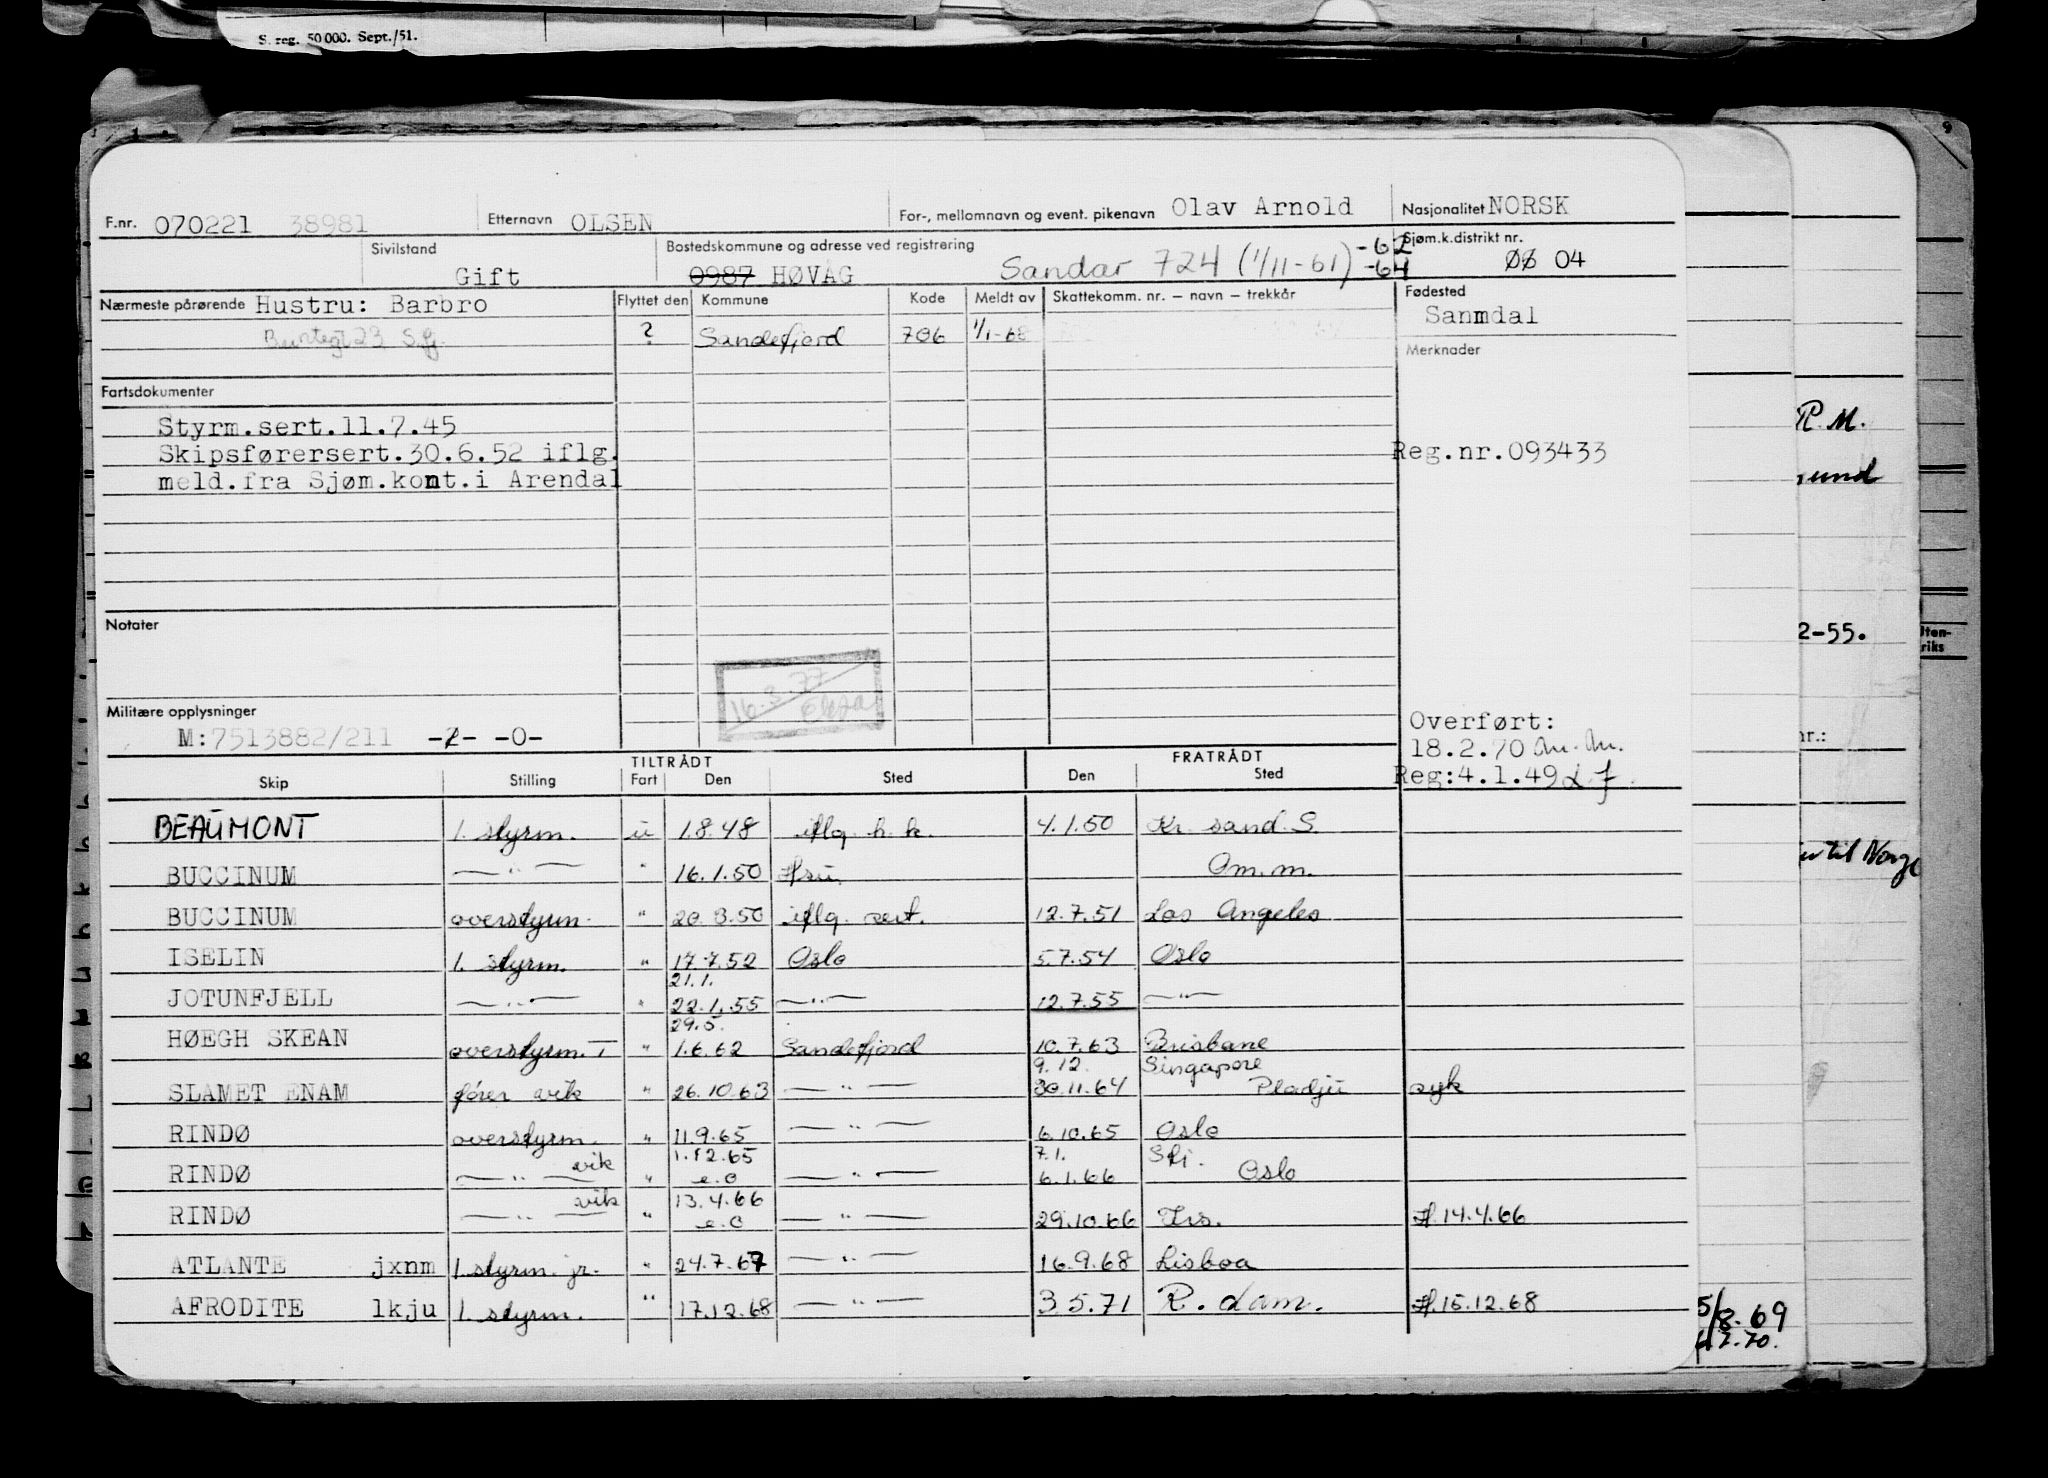 S. reg. 50 000. Sept./51.
F.nr. 070221 38981 Etternavn OLSEN For-, mellomnavn og event. pikenavn Olav Arnold Nasjonalitet NORSK
Sivilstand Gift Bostedskommune og adresse ved registrering 0987 HØVÅG Sandar 724 (1/11-61) -62 -64 Sjøm.k.distrikt nr. ØØ 04
Nærmeste pårørende Hustru: Barbro Flyttet den Kommune Kode Meldt av Skattekomm. nr. – navn – trekkår Fødested
Sanmdal
? Sandefjord 706 1/1-68
Merknader
Fartsdokumenter
Styrm.sert.11.7.45
Skipsførersert.30.6.52 iflg. Reg.nr.093433
meld.fra Sjøm.kont.i Arendal
Notater
16.3.77
Militære opplysninger
M:7513882/211 -2- -0-
Overført:
18.2.70
Reg:4.1.49
TILTRÅDT FRATRÅDT
Skip Stilling Fart Den Sted Den Sted
BEAUMONT 1. styrm. u 1.8.48 iflg. h.k. 4.1.50 Kr. sand. S.
BUCCINUM —"— " 16.1.50 Hsu. Om.m.
BUCCINUM overstyrm. " 20.3.50 iflg. sert. 12.7.51 Los Angeles
ISELIN 1. styrm. " 17.7.52 Oslo 5.7.54 Oslo
21.1.
JOTUNFJELL —"— " 22.1.55 —"— 12.7.55 —"—
29.5.
HØEGH SKEAN overstyrm. T " 1.6.62 Sandefjord 10.7.63 Brisbane
9.12. Singapore
SLAMET ENAM fører vik " 26.10.63 —"— 30.11.64 Pladju syk
RINDØ overstyrm. " 11.9.65 —"— 6.10.65 Oslo
1.12.65 7.1. Sfj.
RINDØ —"— vik " e.o —"— 6.1.66 Oslo
13.4.66
RINDØ —"— vik " e.o —"— 29.10.66 Frs. H.14.4.66
ATLANTE jxnm 1. styrm. jr. " 24.7.67 —"— 16.9.68 Lisboa
AFRODITE lkju 1. styrm. " 17.12.68 —"— 3.5.71 R.dam. H.15.12.68
R.M.
und
2-55.
nr.:
til Norge
5/8.69
7.70.